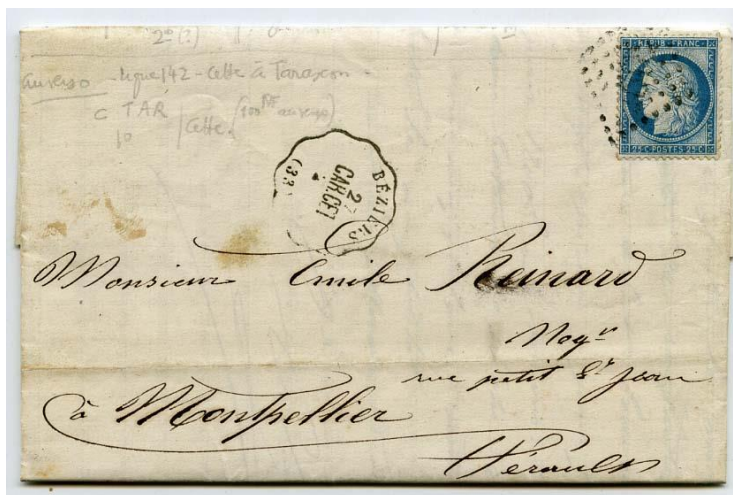 2° (?)
au verso - ligne 142 - Cette à Tarascon -
C TAR / Cette (au verso)
10
REPUB · FRANC ·
25 C · POSTES · 25 C ·
BÉZIERS
2
CAR.CET
(33)
Monsieur Emile Reinard
Nogt
rue petit St Jean
à Montpellier
Hérault